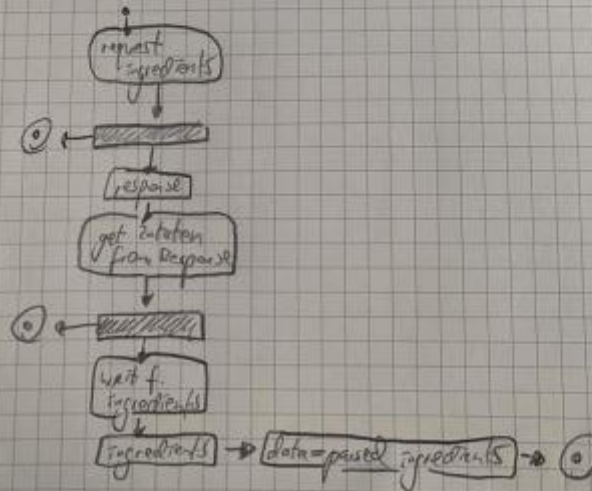 request
ingredients
response
get Zutaten
from Response
wait f.
ingredients
ingredients
data = parsed ingredients